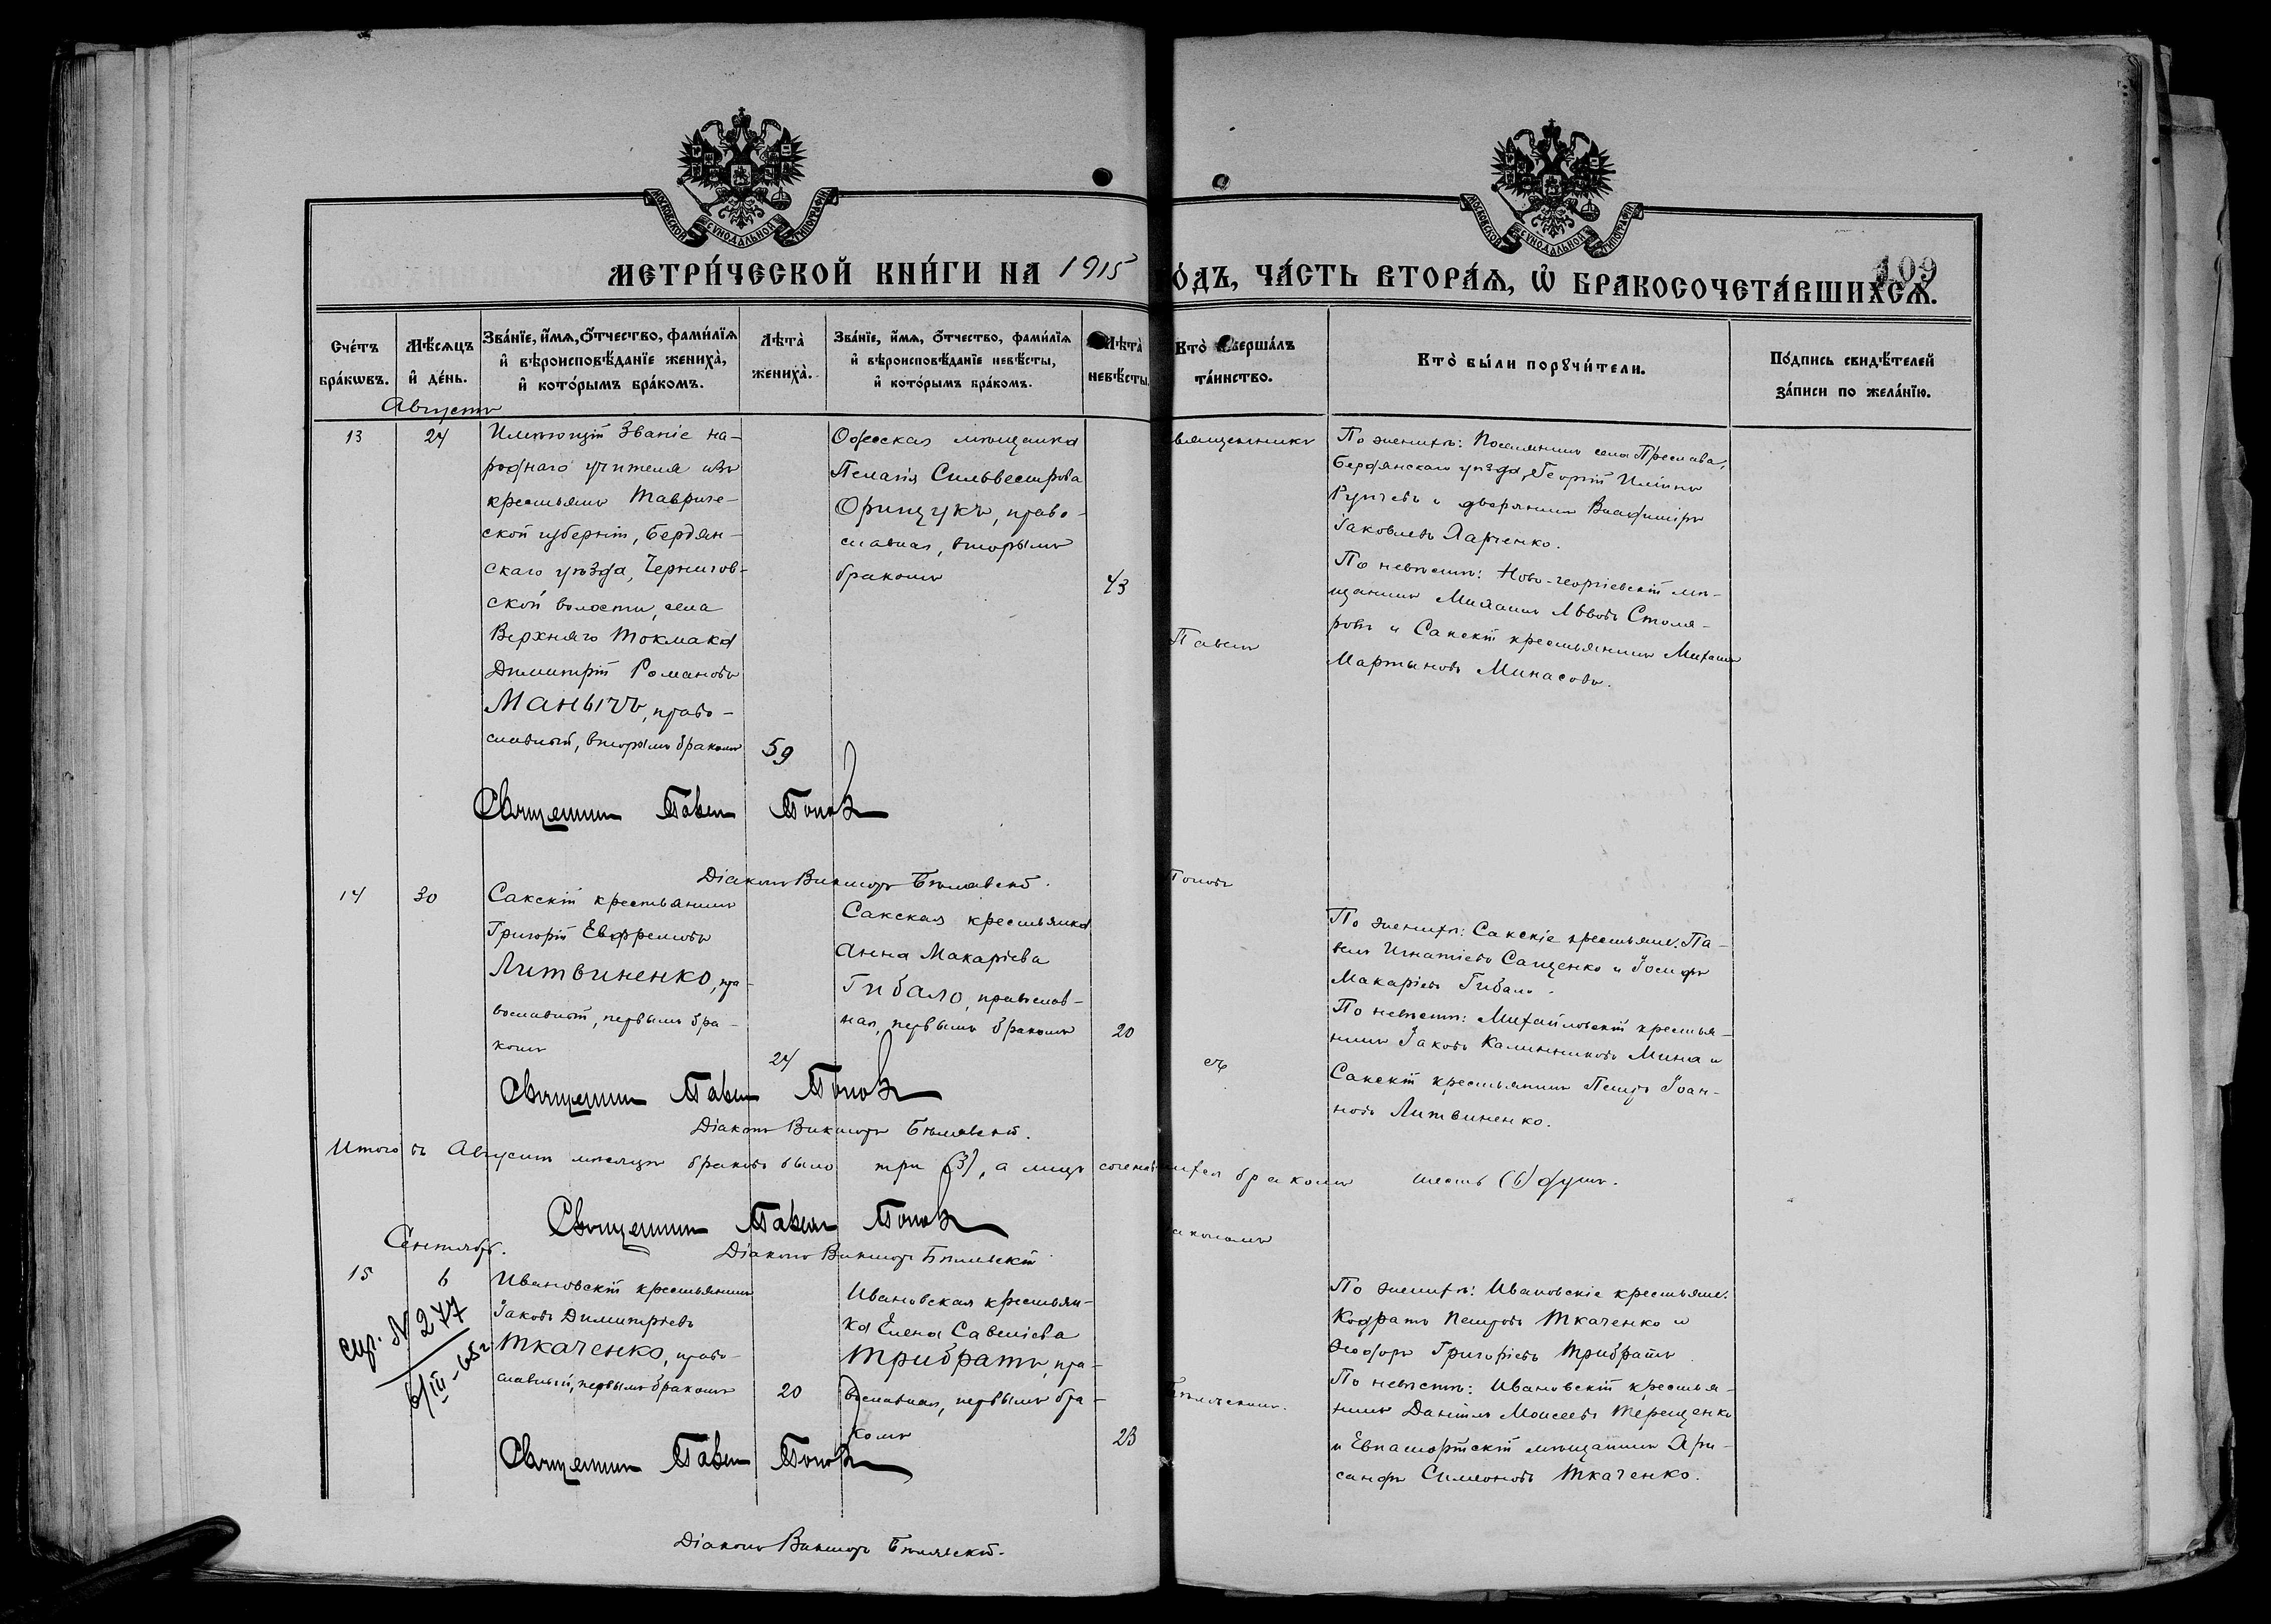 МОСКОВСКОЙ СѴНОДАЛЬНОЙ ТИПОГРАФІИ
МОСКОВСКОЙ СѴНОДАЛЬНОЙ ТИПОГРАФІИ
109
МЕТРИ́ЧЕСКОЙ КНИ́ГИ НА 1915 ОДЪ, ЧА́СТЬ ВТОРА́Ѧ, Ѡ БРАКОСОЧЕТА́ВШИХСѦ.
Сче́тъ бра́кѡвъ.
Мѣ́сѧцъ и҆ де́нь.
Зва́нїе, и҆́мѧ, ѻ҆́тчество, фами́лїѧ и҆ вѣроисповѣ́данїе жениха̀, и҆ кото́рымъ бра́комъ.
Лѣта̀ жениха̀.
Зва́нїе, и҆́мѧ, ѻ҆́тчество, фами́лїѧ и҆ вѣроисповѣ́данїе невѣ́сты, и҆ кото́рымъ бра́комъ.
Лѣта̀ невѣ́сты.
Кто̀ соверша́лъ та́инство.
Кто̀ бы́ли порꙋчи́тели.
По́дпись свидѣ́телей за́писи по жела́нїю.
Августъ
13
24
Имѣющій званіе на-
роднаго учителя изъ
крестьянъ Тавриче-
ской губерніи, Бердян-
скаго уѣзда, Чернигов-
ской волости, села
Верхняго Токмака
Димитрій Романовъ
Манычъ, право-
славный, вторымъ бракомъ
59
Одесская мѣщанка
Пелагія Сильвестрова
Орищукъ, право-
славная, вторымъ
бракомъ
43
вященникъ
Павелъ
По женихѣ: Поселянинъ села Преслава,
Бердянскаго уѣзда, Георгій Иліинъ
Рупчевъ и дворянинъ Владиміръ
Іаковлевъ Харченко.
По невѣстѣ: Ново-георгіевскій мѣ-
щанинъ Михаилъ Львовъ Столя-
ровъ и Сакскій крестьянинъ Михаилъ
Мартыновъ Минасовъ.
Священникъ Павелъ Поповъ
Діаконъ Викторъ Бѣлявскій.
Поповъ
14
30
Сакскій крестьянинъ
Григорій Евфремовъ
Литвиненко, пра-
вославный, первымъ бра-
комъ
24
Сакская крестьянка
Анна Макаріева
Гибало, православ-
ная, первымъ бракомъ
20
съ
По женихѣ: Сакскіе крестьяне: Па-
велъ Игнатіевъ Сащенко и Іосифъ
Макаріевъ Гибало.
По невѣстѣ: Михайловскій крестья-
нинъ Іаковъ Калинниковъ Мина и
Сакскій крестьянинъ Петръ Іоан-
новъ Литвиненко.
Священникъ Павелъ Поповъ
Діаконъ Викторъ Бѣлявскій.
Итого въ Августѣ мѣсяцѣ браковъ было три (3), а лицъ сочетавшихся бракомъ шесть (6) душъ.
Священникъ Павелъ Поповъ
Діаконъ Викторъ Бѣлявскій
іакономъ
Сентябрь.
15
6
Ивановскій крестьянинъ
Іаковъ Димитріевъ
Ткаченко, право-
славный, первымъ бракомъ
20
Ивановская крестьян-
ка Елена Савеліева
Трибратъ, пра-
вославная, первымъ бра-
комъ
23
Бѣлявскимъ.
По женихѣ: Ивановскіе крестьяне:
Кодратъ Петровъ Ткаченко и
Ѳеодоръ Григоріевъ Трибратъ.
По невѣстѣ: Ивановскій крестья-
нинъ Даніилъ Моисеевъ Терещенко
и Евпаторійскій мѣщанинъ Хри-
санфъ Симеоновъ Ткаченко.
спр. N 277
6/III-65г
Священникъ Павелъ Поповъ
Діаконъ Викторъ Бѣлявскій.